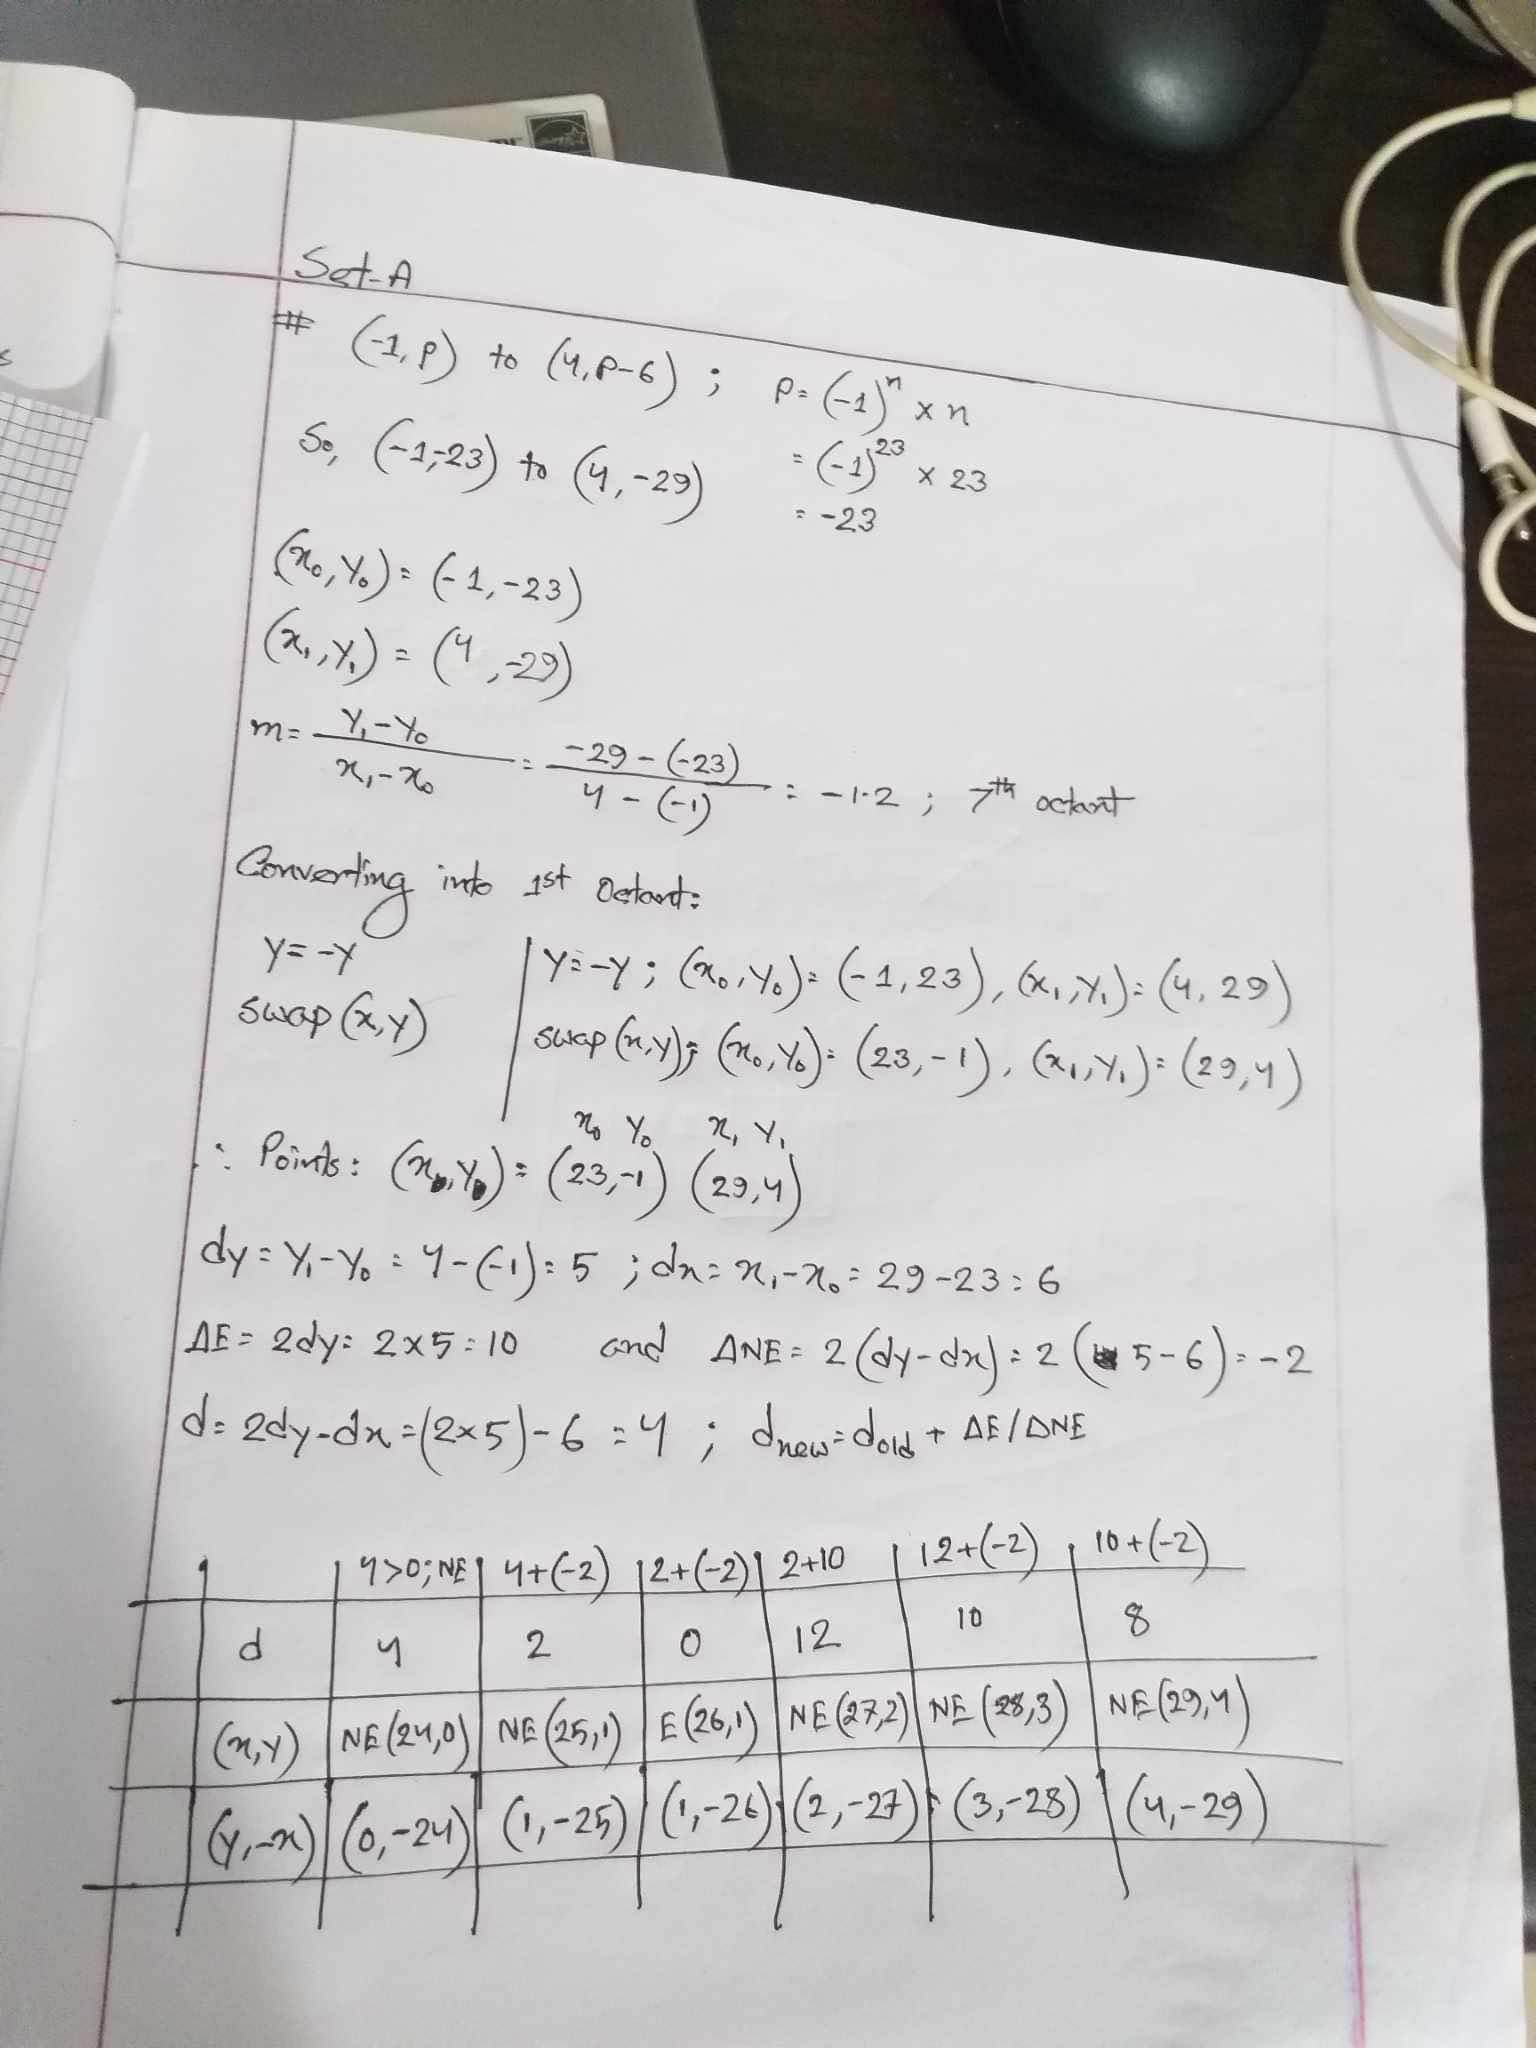 Set-A
# (-1, P) to (4, P-6) ; P = (-1)ⁿ × n
So, (-1,-23) to (4, -29) = (-1)²³ × 23
= -23
(x₀, Y₀) = (-1, -23)
(x₁, Y₁) = (4, -29)
m = (Y₁ - Y₀)/(x₁ - x₀) = (-29 - (-23))/(4 - (-1)) = -1.2 ; 7th octant
Converting into 1st Octant:
Y = -Y | Y = -Y ; (x₀, Y₀) = (-1, 23), (x₁, Y₁) = (4, 29)
swap (x, Y) | swap (x, Y) ; (x₀, Y₀) = (23, -1), (x₁, Y₁) = (29, 4)
x₀ Y₀ x₁ Y₁
∴ Points: (x₀, Y₀) = (23, -1) (29, 4)
dy = Y₁ - Y₀ = 4 - (-1) = 5 ; dx = x₁ - x₀ = 29 - 23 = 6
ΔE = 2dy = 2×5 = 10 and ΔNE = 2 (dy - dx) = 2 (5 - 6) = -2
d = 2dy - dx = (2×5) - 6 = 4 ; dnew = dold + ΔE/ΔNE
4>0; NE | 4+(-2) | 2+(-2) | 2+10 | 12+(-2) | 10+(-2)
d | 4 | 2 | 0 | 12 | 10 | 8
(x, Y) | NE (24,0) | NE (25,1) | E (26,1) | NE (27,2) | NE (28,3) | NE (29,4)
(Y, -x) | (0, -24) | (1, -25) | (1, -26) | (2, -27) | (3, -28) | (4, -29)